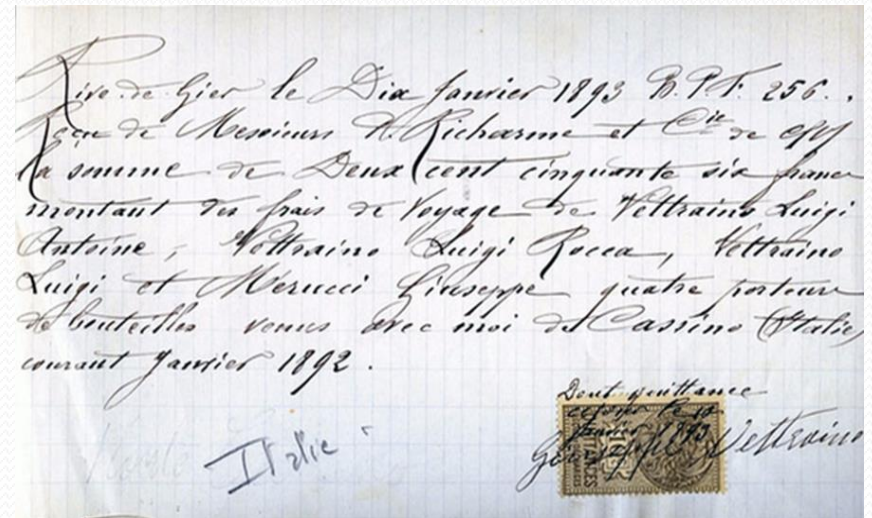 Rive-de-Gier le Dix Janvier 1893 B.P.F. 256.
Reçu de Messieurs Richarme et Cie de
la somme de Deux cent cinquante six francs
montant des frais de Voyage de Vettraino Luigi
Antoine, Vettraino Luigi Rocca, Vettraino
Luigi et Merucci Giuseppe quatre porteurs
de bouteilles venus avec moi de Cassino (Italie)
courant Janvier 1892.
Dont quittance
le 10
Janvier 1893
Giuseppe Vettraino
Italie